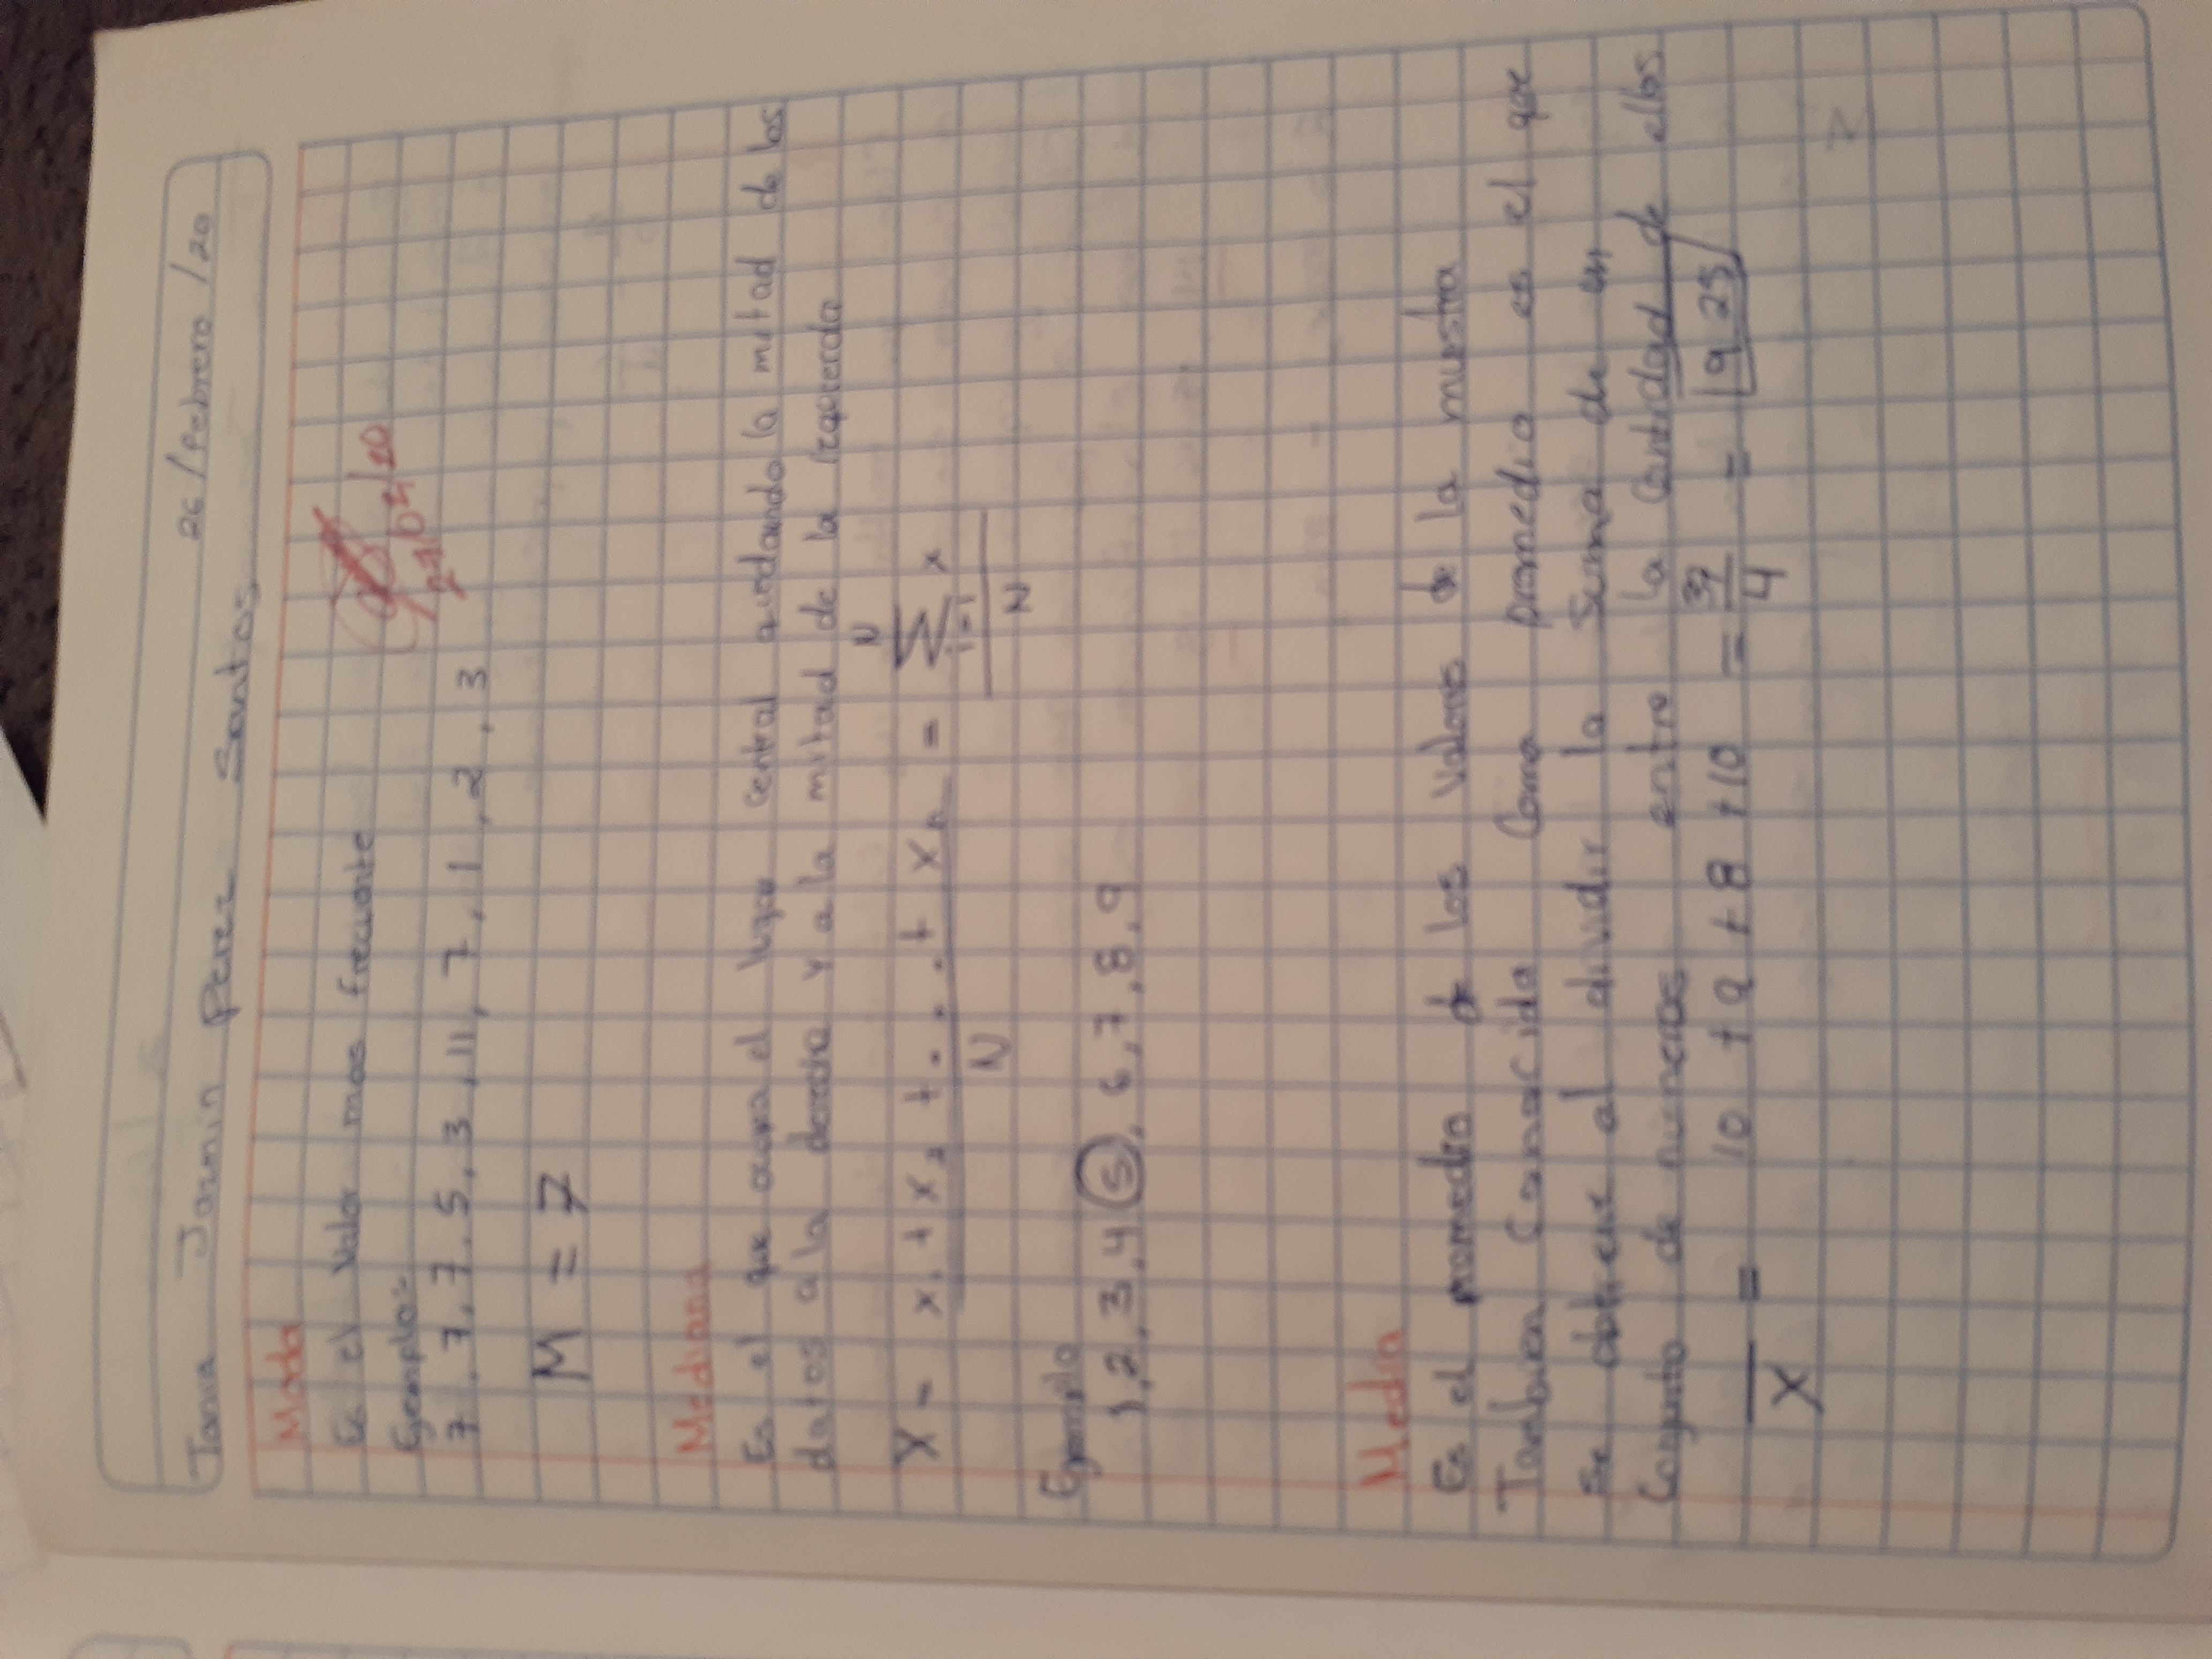 26/febrero/20
Tania Jazmin Perez Santos
Moda
Es el valor mas frecuente
Ejemplo:
7, 7, 7, 5, 3, 11, 7, 1, 2, 3
27/02/20
M = 7
Mediana
Es el que ocupa el lugar central quedando la mitad de los
datos a la derecha y a la mitad de la izquierda
X = x1 + x2 + . . . + xn = N Σ i=1 x
N N
Ejemplo
1, 2, 3, 4 5, 6, 7, 8, 9
Media
Es el promedio de los valores de la muestra
Tambien Conocida Como promedio es el que
se obtiene al dividir la suma de un
Conjunto de numeros entre la cantidad de ellos
X = 10 + 9 + 8 + 10 = 37/4 = 9.25